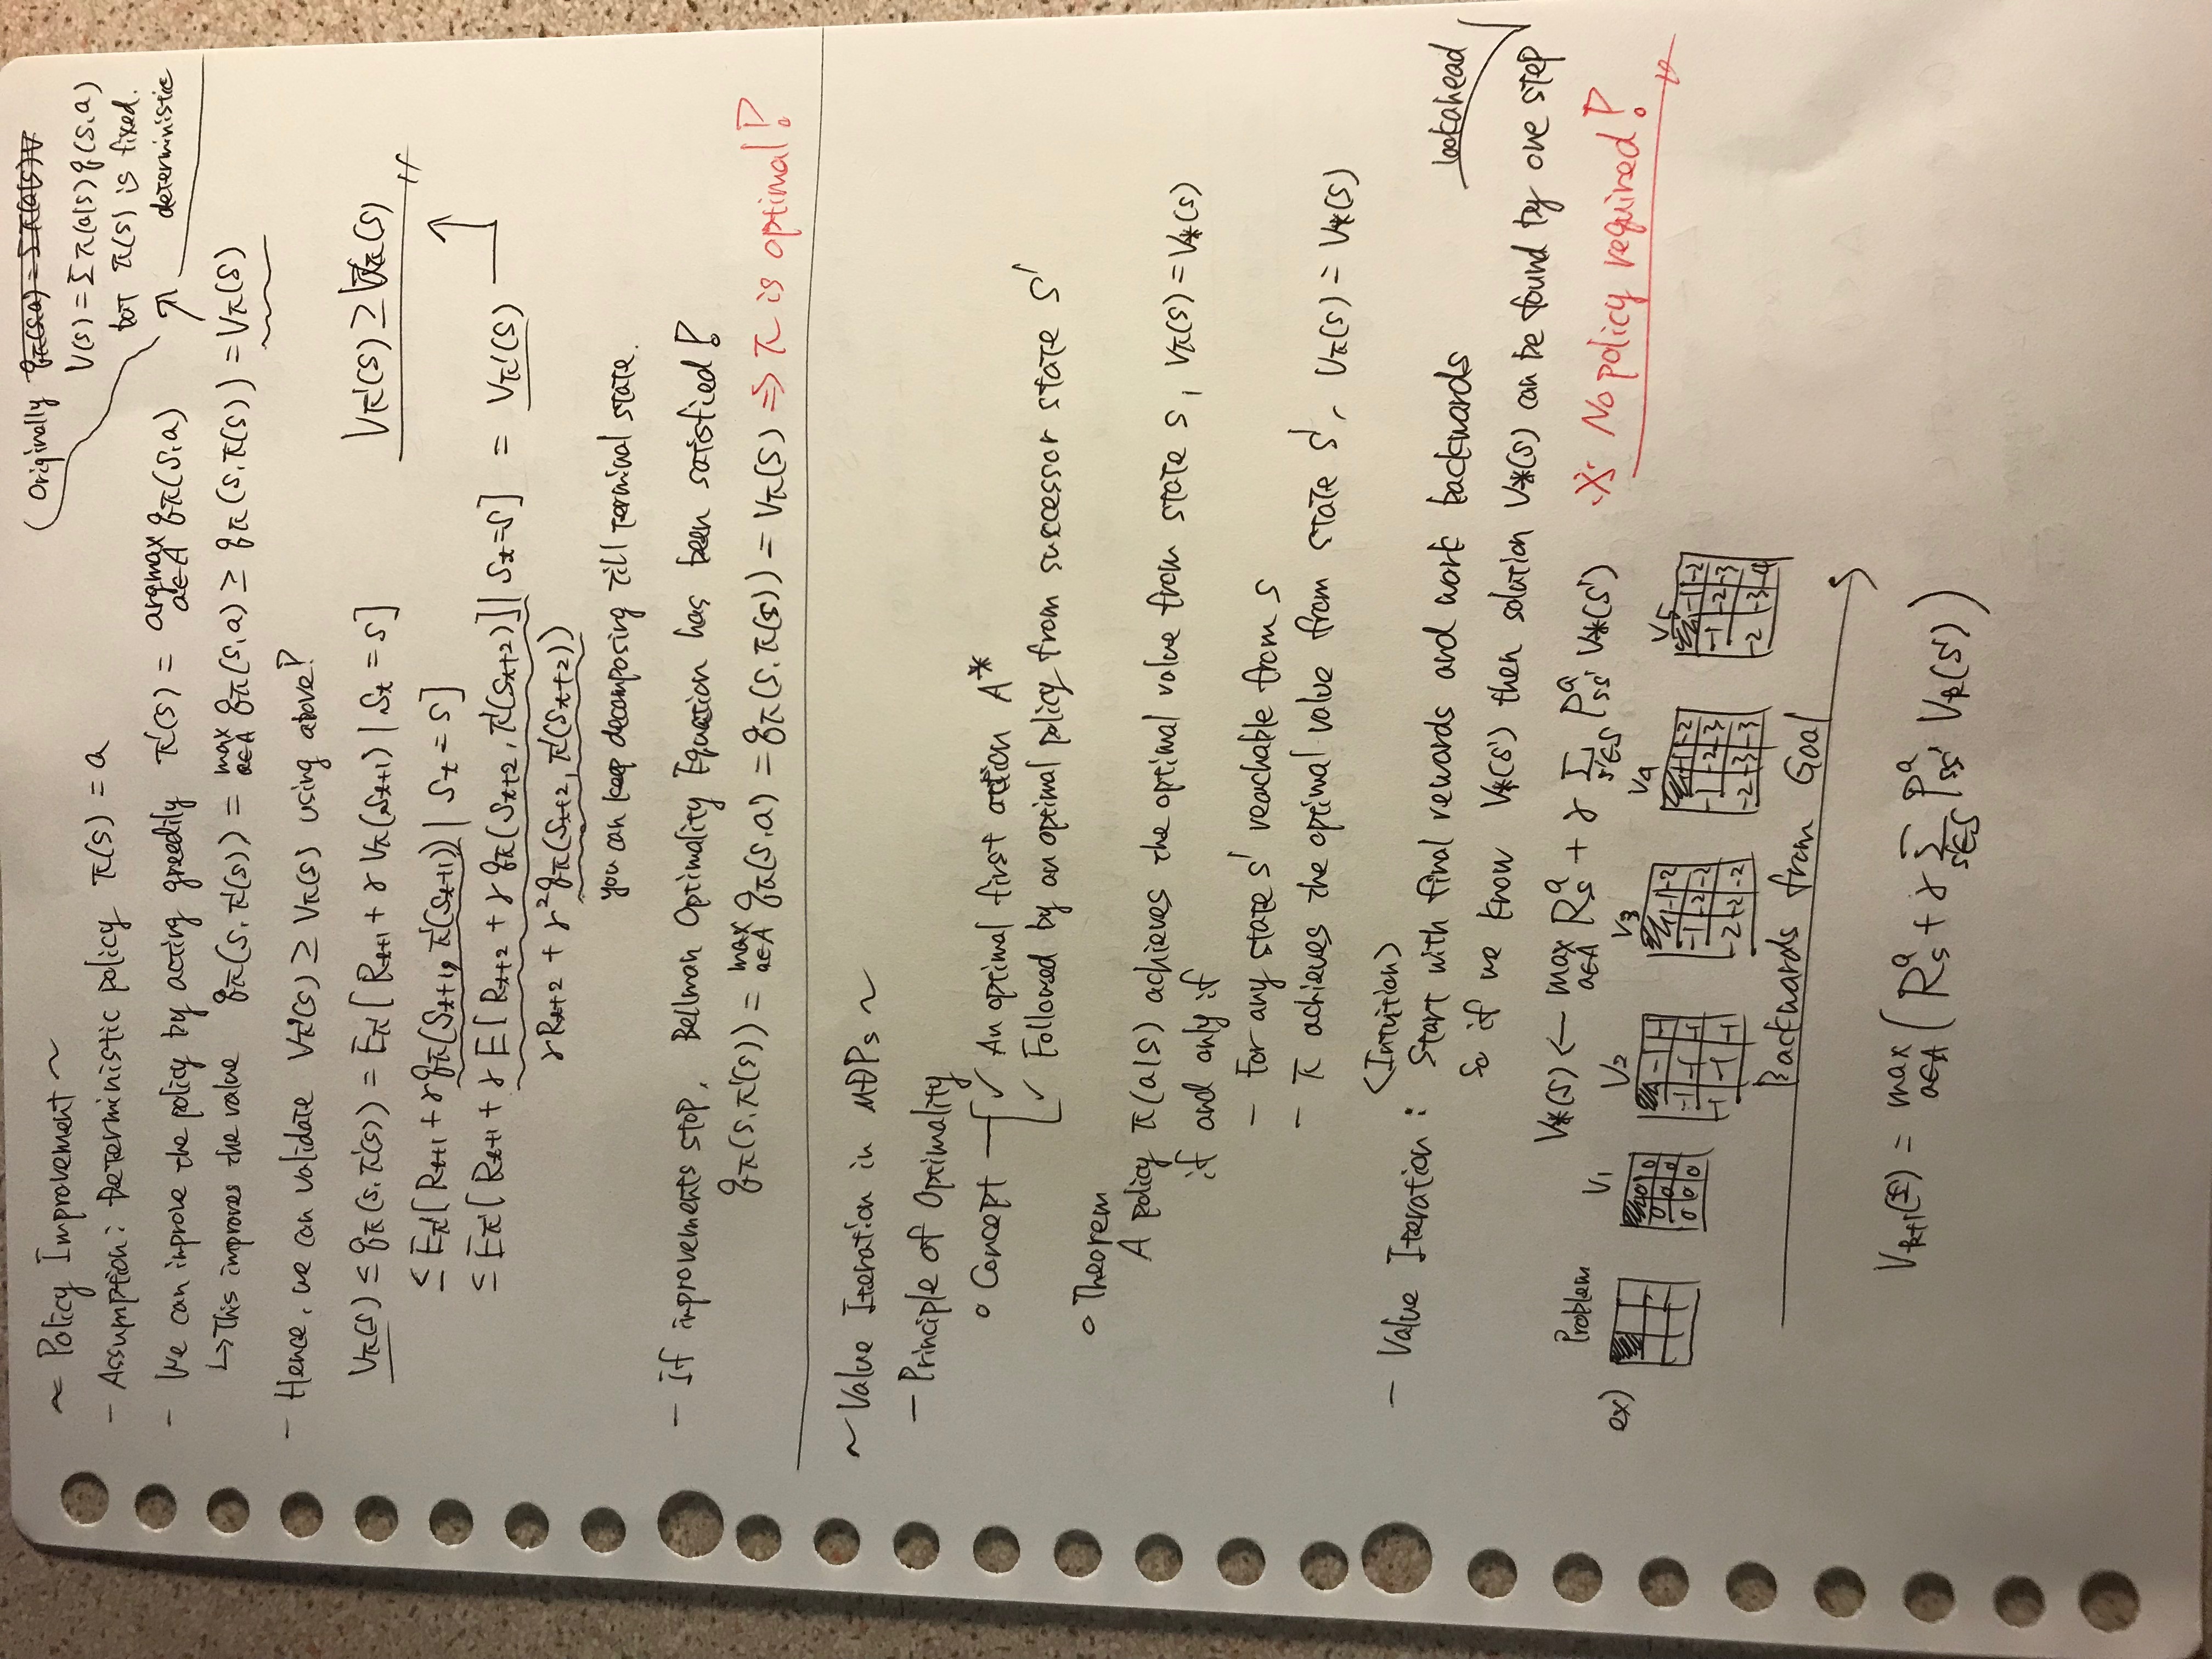 ~ Policy Improvement ~
(Originally q_π(s,a) = Σ π(a|s) V
V(s) = Σ π(a|s) q(s,a)
but π(s) is fixed.
deterministic
- Assumption: Deterministic policy π(s) = a
- We can improve the policy by acting greedily π'(s) = argmax a∈A q_π(s,a)
↳ This improves the value q_π(s,π'(s)) = max a∈A q_π(s,a) ≥ q_π(s,π(s)) = V_π(s)
- Hence, we can validate V_π'(s) ≥ V_π(s) using above!
V_π(s) ≤ q_π(s,π'(s)) = E_π'[R_t+1 + γ V_π(S_t+1) | S_t = s]
V_π'(s) ≥ V_π(s)
≤ E_π'[R_t+1 + γ q_π(S_t+1, π'(S_t+1)) | S_t = s]
≤ E_π'[R_t+1 + γ E[R_t+2 + γ q_π(S_t+2, π'(S_t+2)] | S_t = s] = V_π'(s)
γR_t+2 + γ² q_π(S_t+2, π'(S_t+2))
you can keep decomposing till terminal state.
- If improvements stop, Bellman Optimality Equation has been satisfied!
q_π(s,π'(s)) = max a∈A q_π(s,a) = q_π(s,π(s)) = V_π(s) ⇒ π is optimal!
~ Value Iteration in MDPs ~
- Principle of Optimality
○ Concept ✓ An optimal first action A*
✓ Followed by an optimal policy from successor state S'
○ Theorem
A policy π(a|s) achieves the optimal value from state s, V_π(s) = V*(s)
if and only if
- For any state s' reachable from s
- π achieves the optimal value from state s', V_π(s) = V*(s)
<Intuition>
- Value Iteration: Start with final rewards and work backwards
lookahead
So if we know V*(s') then solution V*(s) can be found by one step
V*(s) ← max a∈A R_s^a + γ Σ s'∈S P_ss'^a V*(s')
※ No policy required!
ex) Problem V1 V2 V3 V4 V5
0 0 -1 -1 -1 -2 -1 -2 -1 -2
0 0 0 -1 -1 -1 -1 -2 -2 -1 -2 -3 -1 -2 -3
0 0 0 -1 -1 -1 -2 -2 -2 -2 -3 -3 -2 -3 -4
Backwards from Goal
V_k+1(s) = max a∈A (R_s^a + γ Σ s'∈S P_ss'^a V_k(s'))